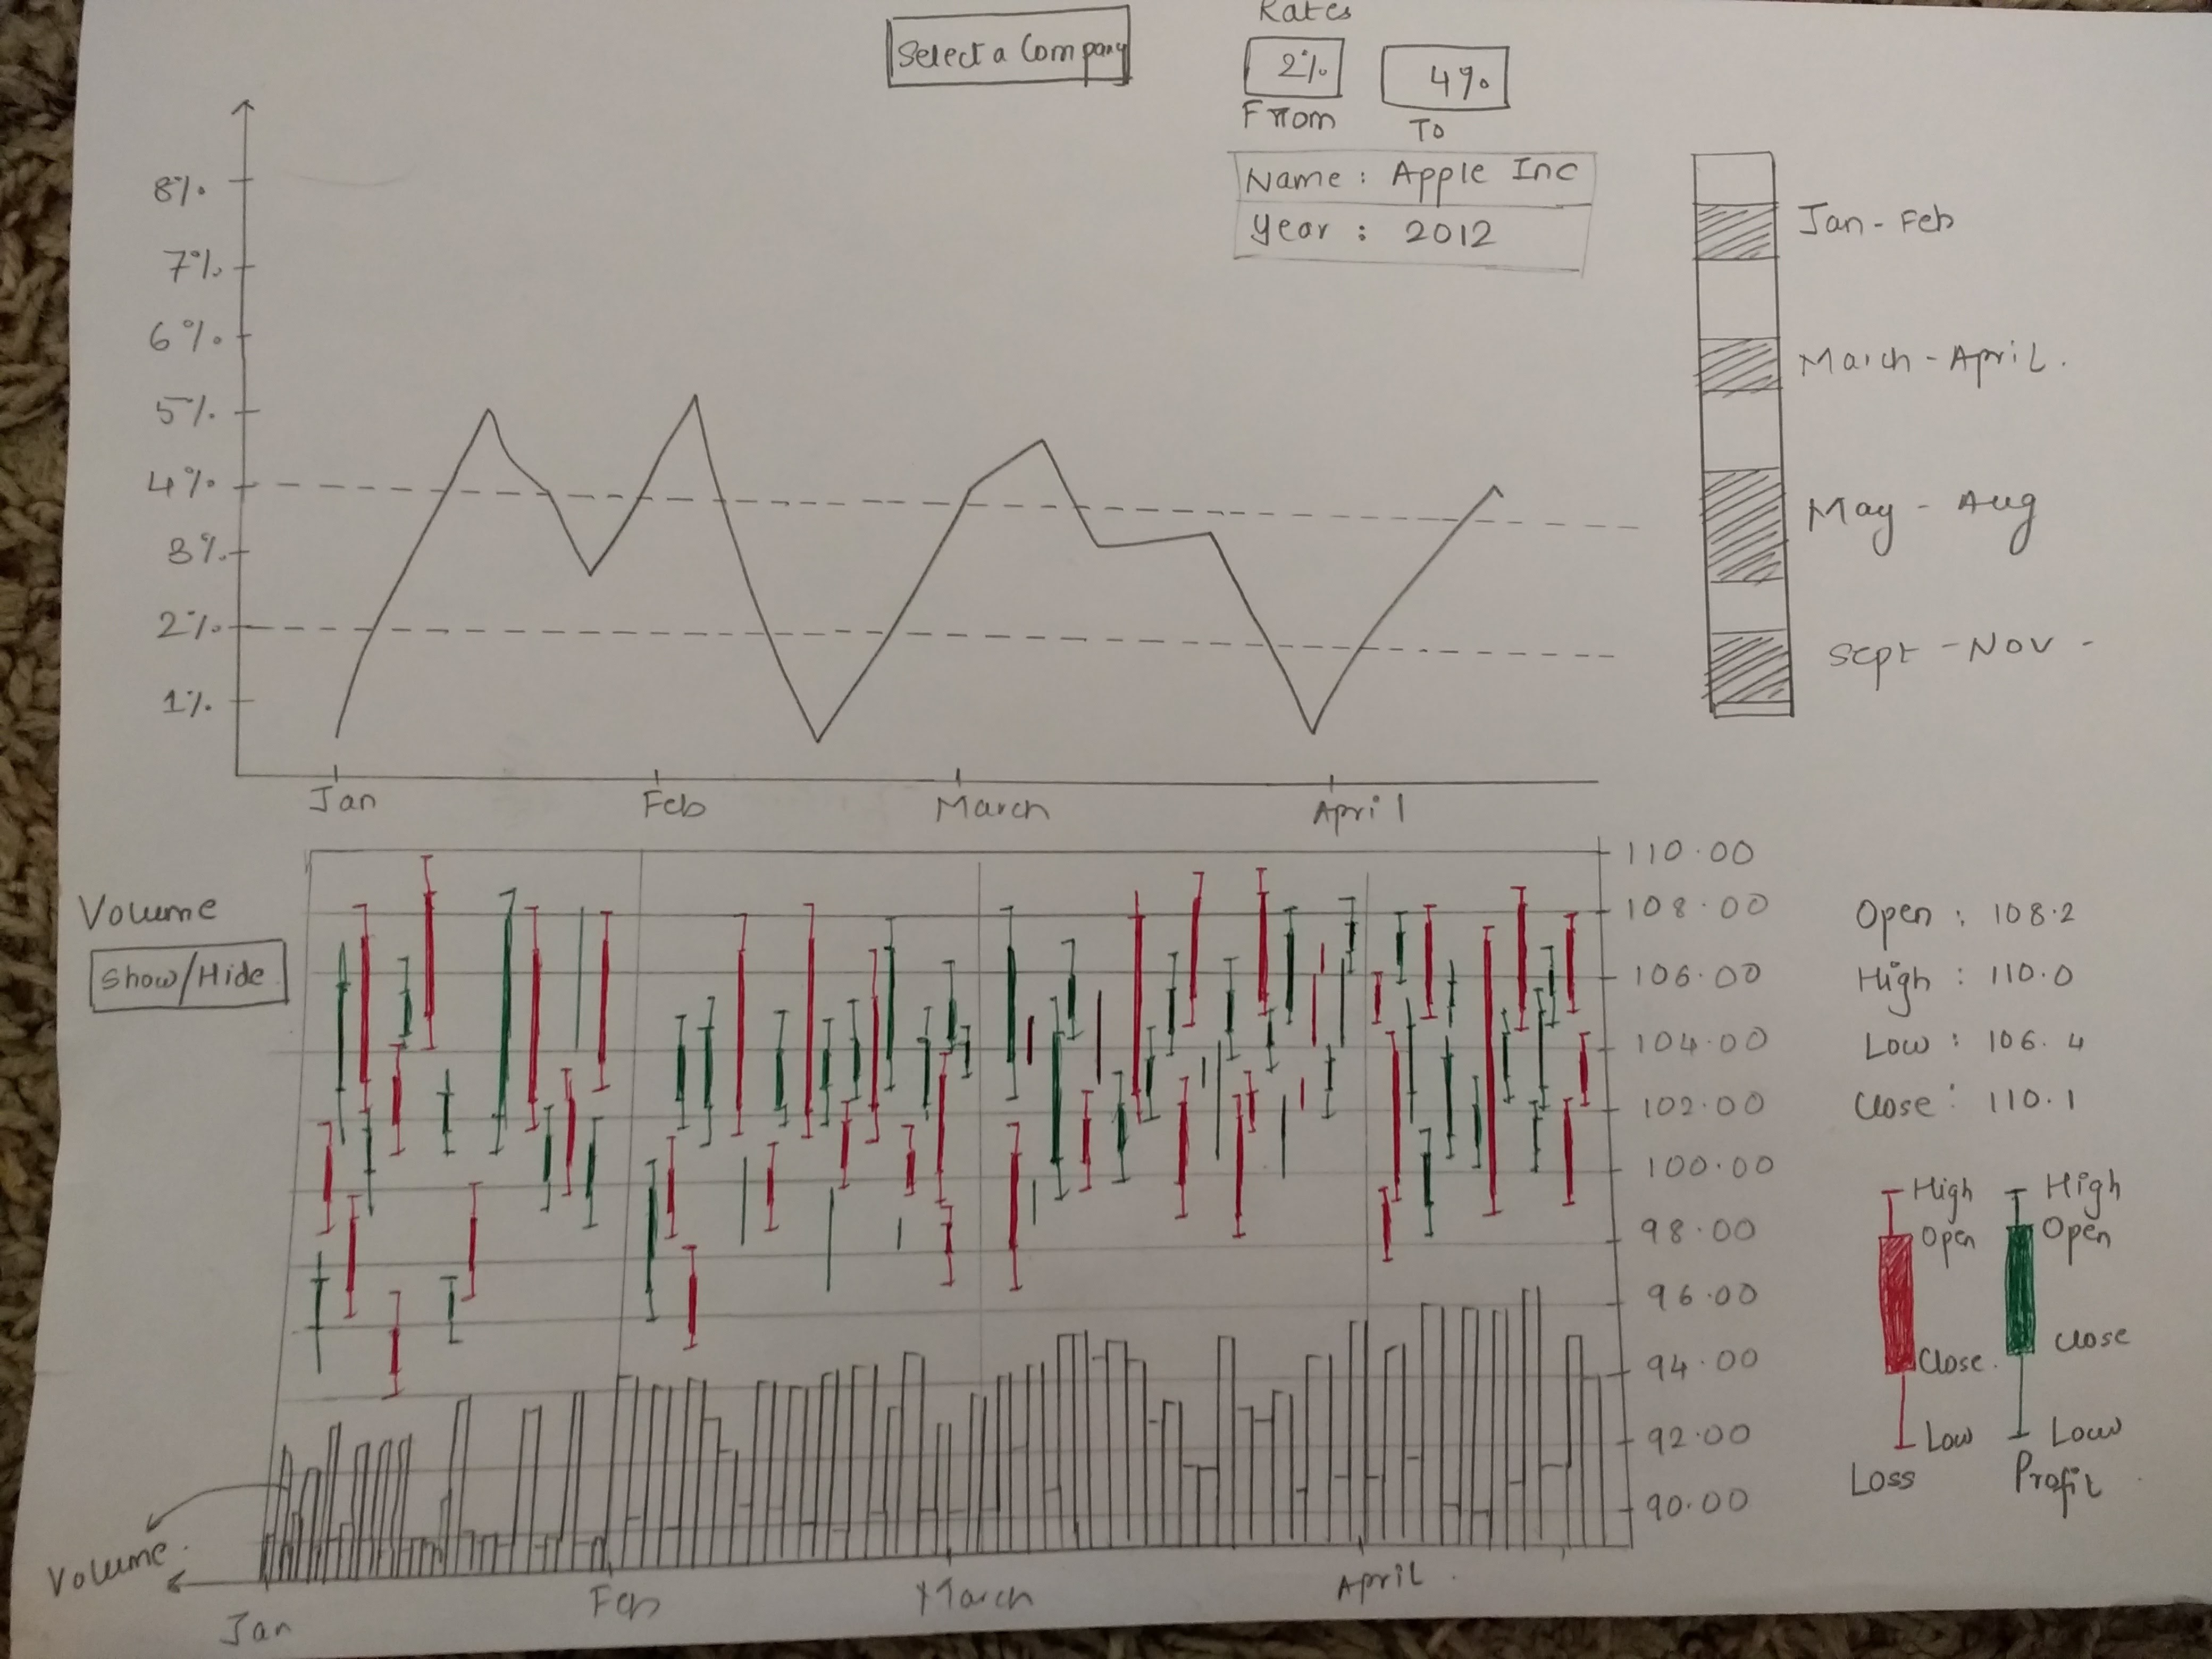 Select a Company
Rates
2%
4%
From
To
Name : Apple Inc
Year : 2012
8%
7%
6%
5%
4%
3%
2%
1%
Jan
Feb
March
April
Jan - Feb
March - April.
May - Aug
Sept - Nov -
Volume
Show/Hide
110.00
108.00
106.00
104.00
102.00
100.00
98.00
96.00
94.00
92.00
90.00
Volume.
Jan
Feb
March
April.
Open : 108.2
High : 110.0
Low : 106.4
Close : 110.1
High
Open
Close.
Low
Loss
High
Open
Close
Low
Profit